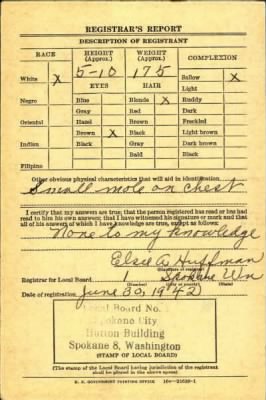 REGISTRAR'S REPORT
DESCRIPTION OF REGISTRANT
RACE HEIGHT (Approx.) WEIGHT (Approx.) COMPLEXION
White X 5-10 175 Sallow X
EYES HAIR Light
Negro Blue Blonde X Ruddy
Gray Red Dark
Oriental Hazel Brown Freckled
Brown X Black Light brown
Indian Black Gray Dark brown
Bald Black
Filipino
Other obvious physical characteristics that will aid in identification
Small mole on chest
I certify that my answers are true; that the person registered has read or has had
read to him his own answers; that I have witnessed his signature or mark and that
all of his answers of which I have knowledge are true, except as follows:
None to my knowledge
Elsie D. Huffman
(Signature of registrar)
Registrar for Local Board 1 Spokane Wn
(Number) (City or county) (State)
Date of registration June 30, 1942
Local Board No. 1
Spokane City
Hutton Building
Spokane 8, Washington
(STAMP OF LOCAL BOARD)
(The stamp of the Local Board having jurisdiction of the registrant
shall be placed in the above space)
U. S. GOVERNMENT PRINTING OFFICE 16—21630-1